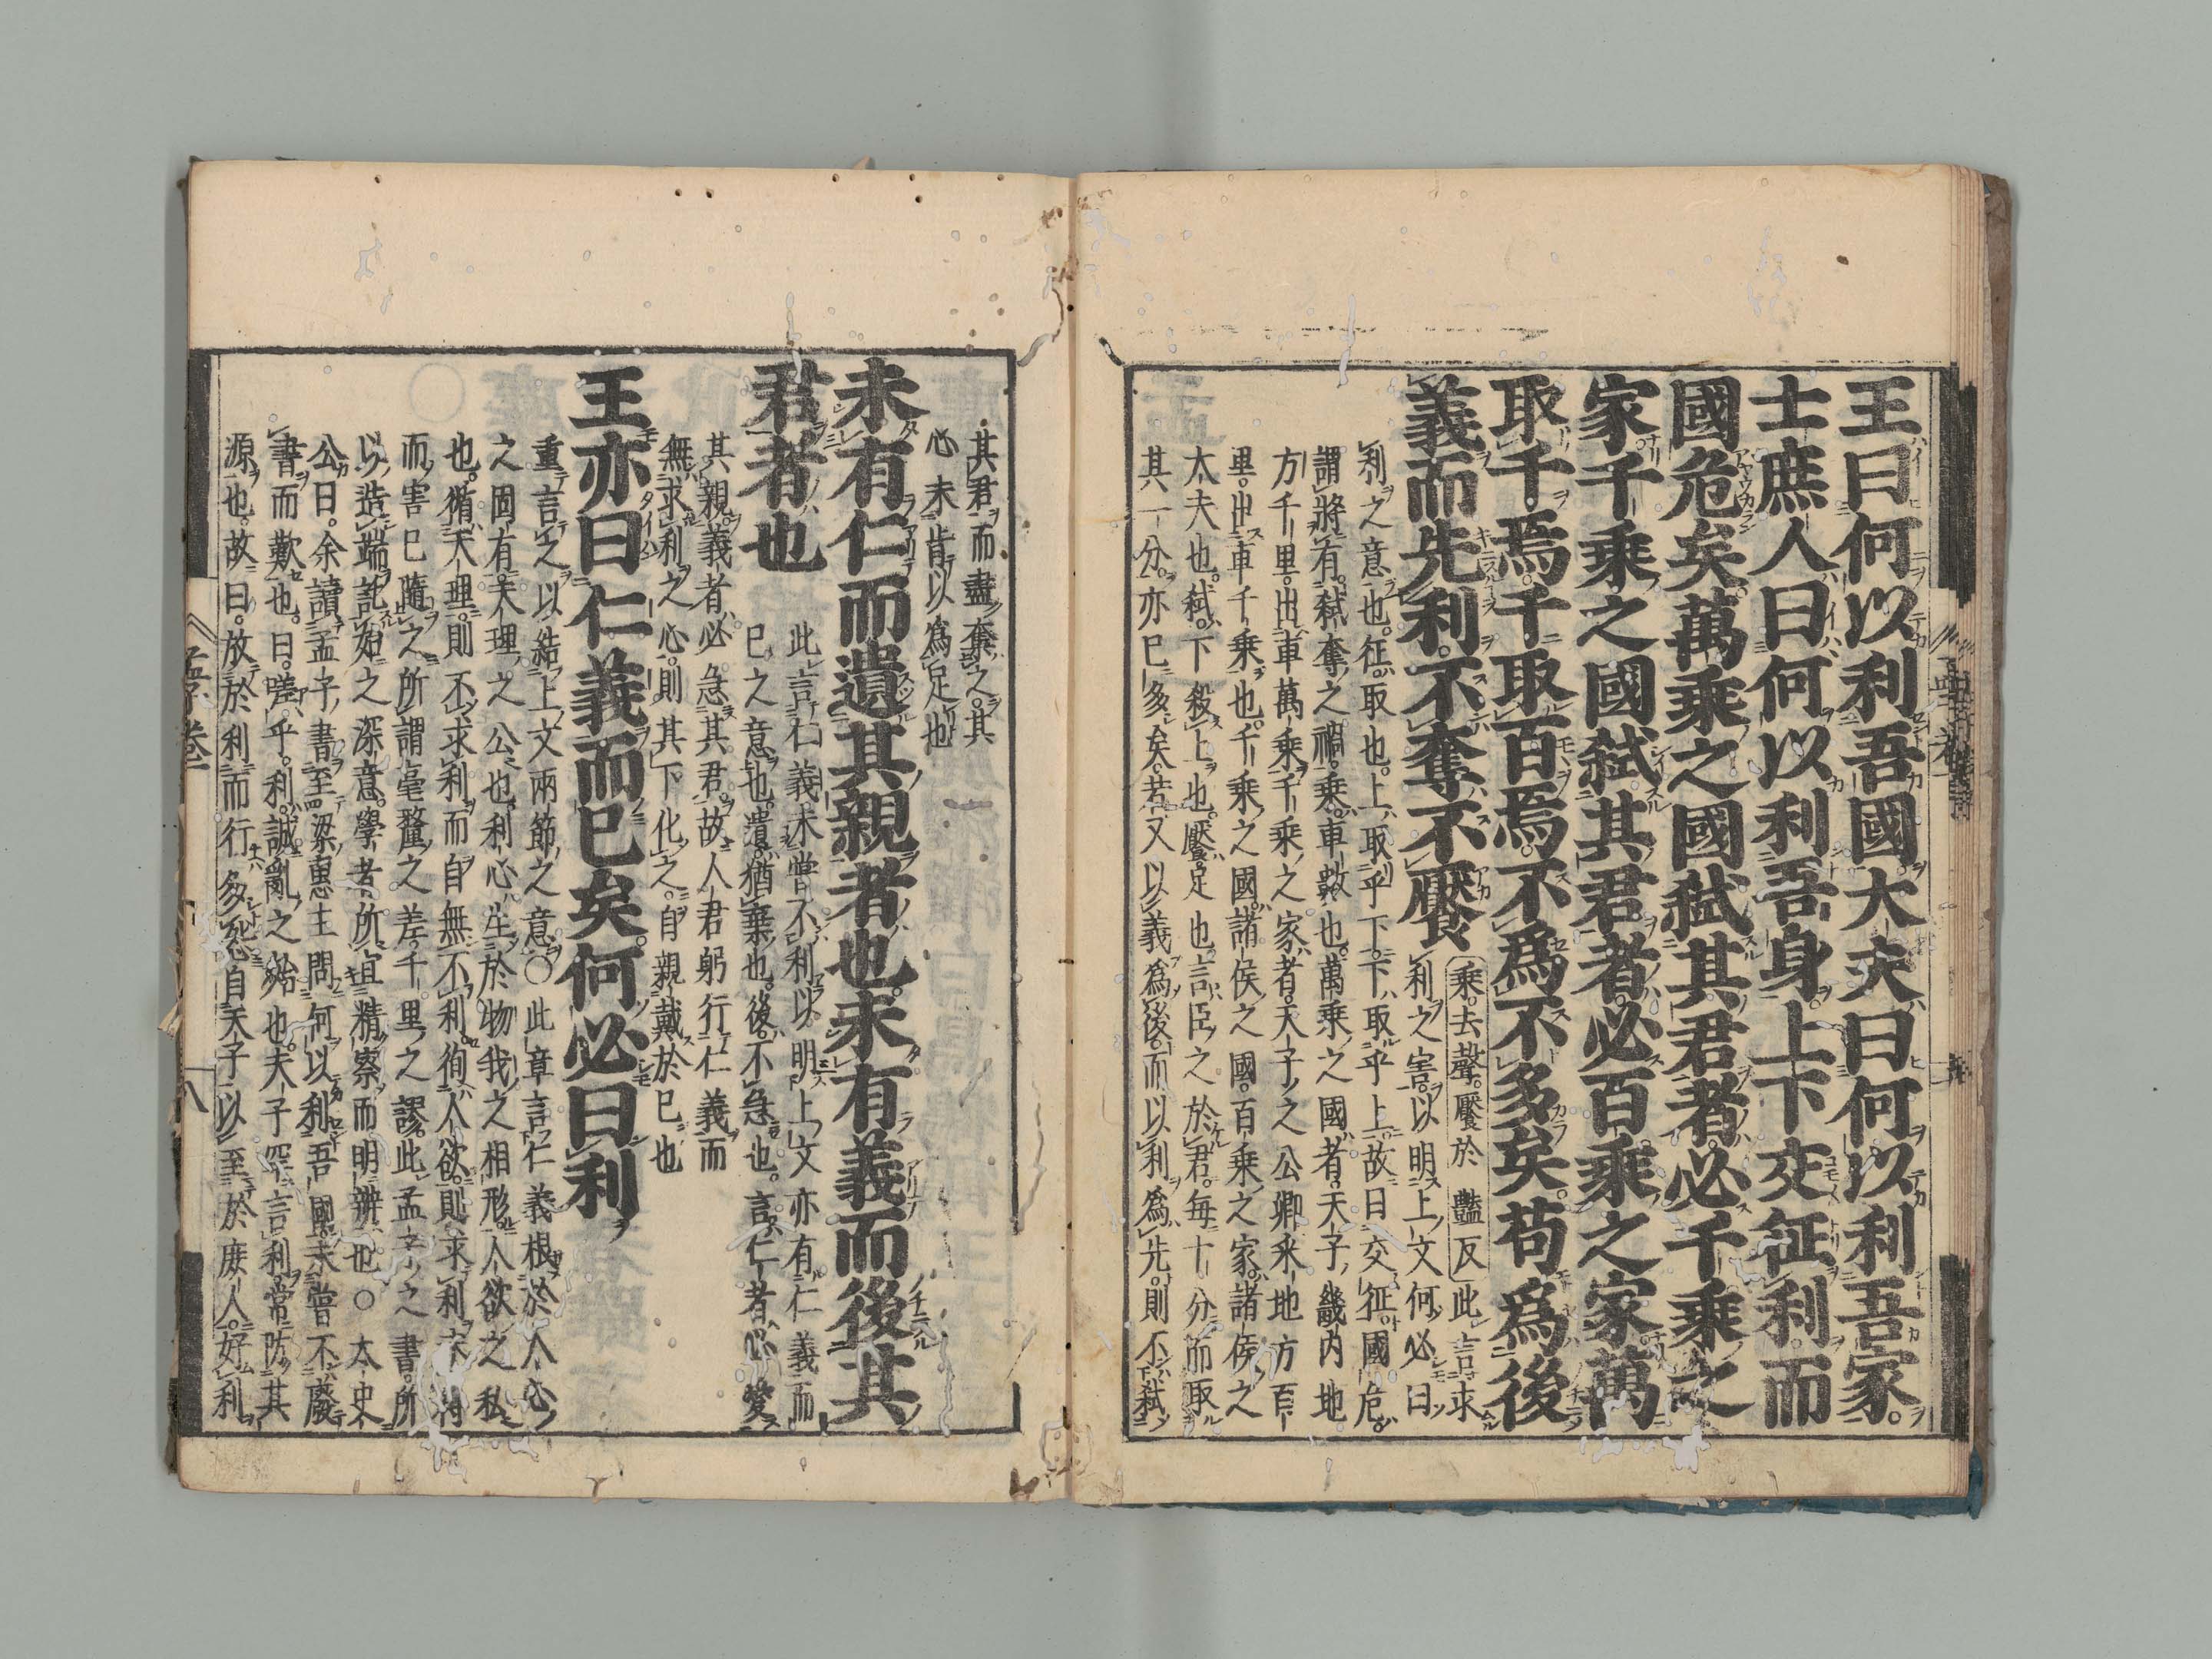 王曰何以利吾國大夫曰何以利吾家
士庶人曰何以利吾身上下交征利而
國危矣萬乘之國弑其君者必千乘之
家千乘之國弑其君者必百乘之家萬
取千焉千取百焉不爲不多矣苟爲後
義而先利不奪不饜
乘去聲。饜於豔反
此言求
利之害。以明上文何必曰
利之意也。征。取也。上取乎下。下取乎上。故曰交征。國危。
謂將有弑奪之禍。乘。車數也。萬乘之國者。天子畿內地
方千里。出車萬乘。千乘之家者。天子之公卿采地方百
里。出車千乘也。千乘之國。諸侯之國。百乘之家。諸侯之
大夫也。弑。下殺上也。饜。足也。言臣之於君。每十分而取
其一分。亦已多矣。若又以義爲後。而以利爲先。則不弑
其君而盡奪之。其
心未肯以爲足也
未有仁而遺其親者也未有義而後其
君者也
此言仁義未嘗不利。以明上文亦有仁義而
已之意也。遺。猶棄也。後。不急也。言仁者必愛
其親。義者必急其君。故人君躬行仁義而
無求利之心。則其下化之。自親戴於已也
王亦曰仁義而已矣何必曰利
重言之。以結上文兩節之意。○此章言仁義根於人心
之固有。天理之公也。利心生於物我之相形。人欲之私
也。循天理。則不求利而自無不利。徇人欲。則求利未得
而害已隨之。所謂毫釐之差。千里之謬。此孟子之書。所
以造端託始之深意。學者所宜精察而明辨也。○太史
公曰。余讀孟子書至梁惠王問何以利吾國。未嘗不廢
書而歎也。曰。嗟乎。利。誠亂之始也。夫子罕言利。常防其
源也。故曰。放於利而行多怨。自天子以至於庶人。好利
孟子卷一
八